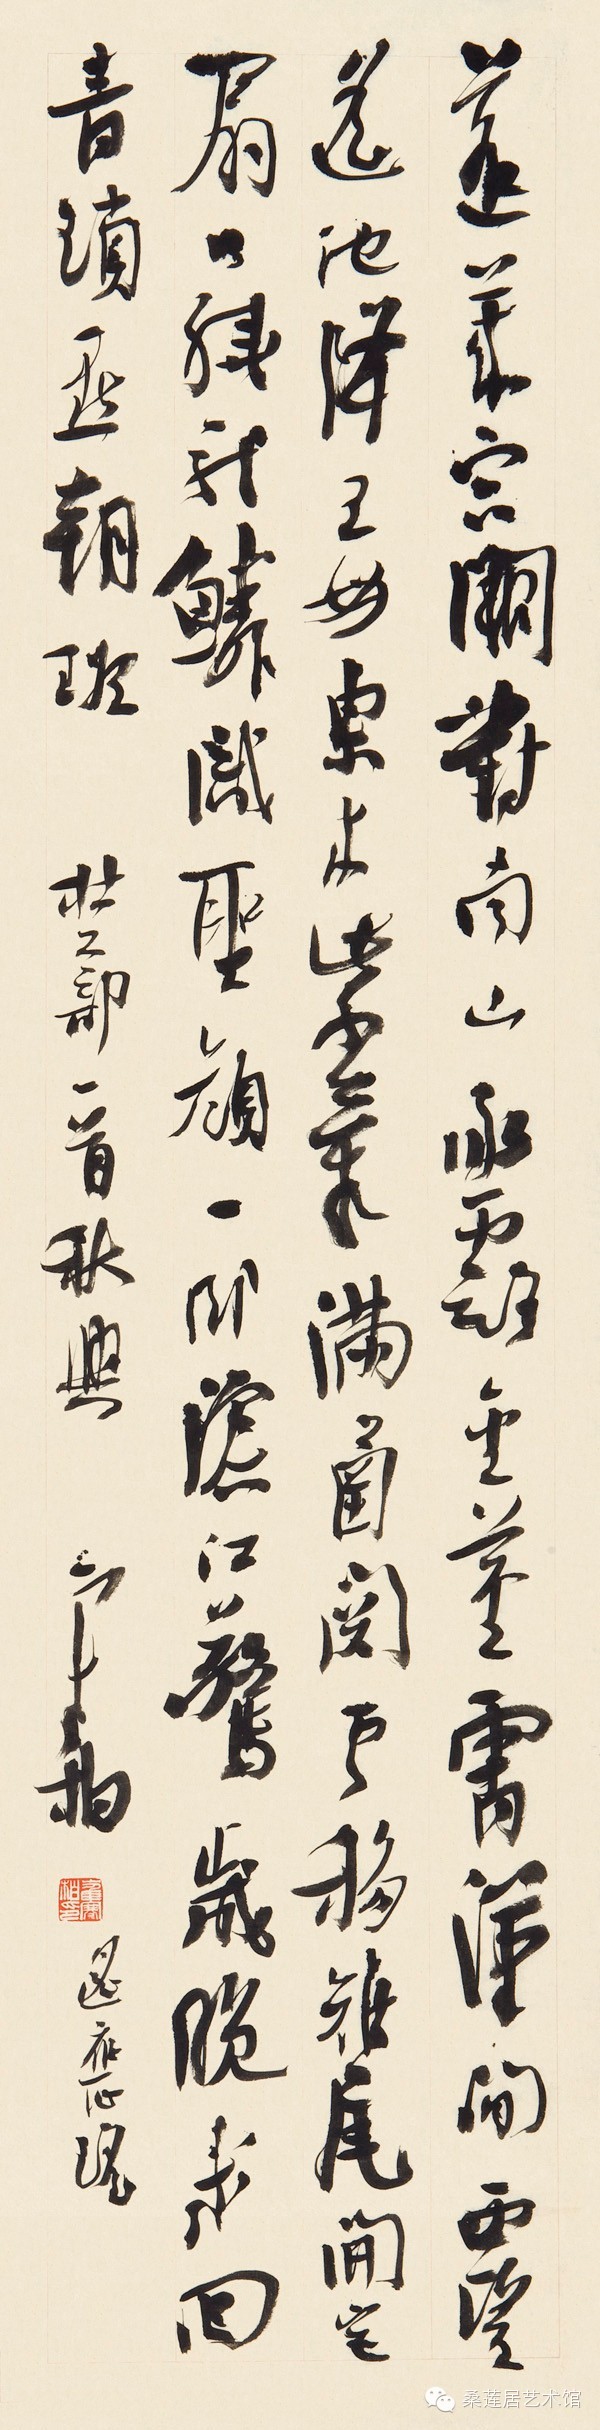 蓬萊宮闕對南山承露金莖霄漢間西望
遙池降王母東來紫氣滿函關雲移雉尾開宮
扇日繞龍鱗識聖顏一臥滄江驚歲晚幾回
青瑣點朝班 杜工部一首秋興
遙應正瑤
桑莲居艺术馆